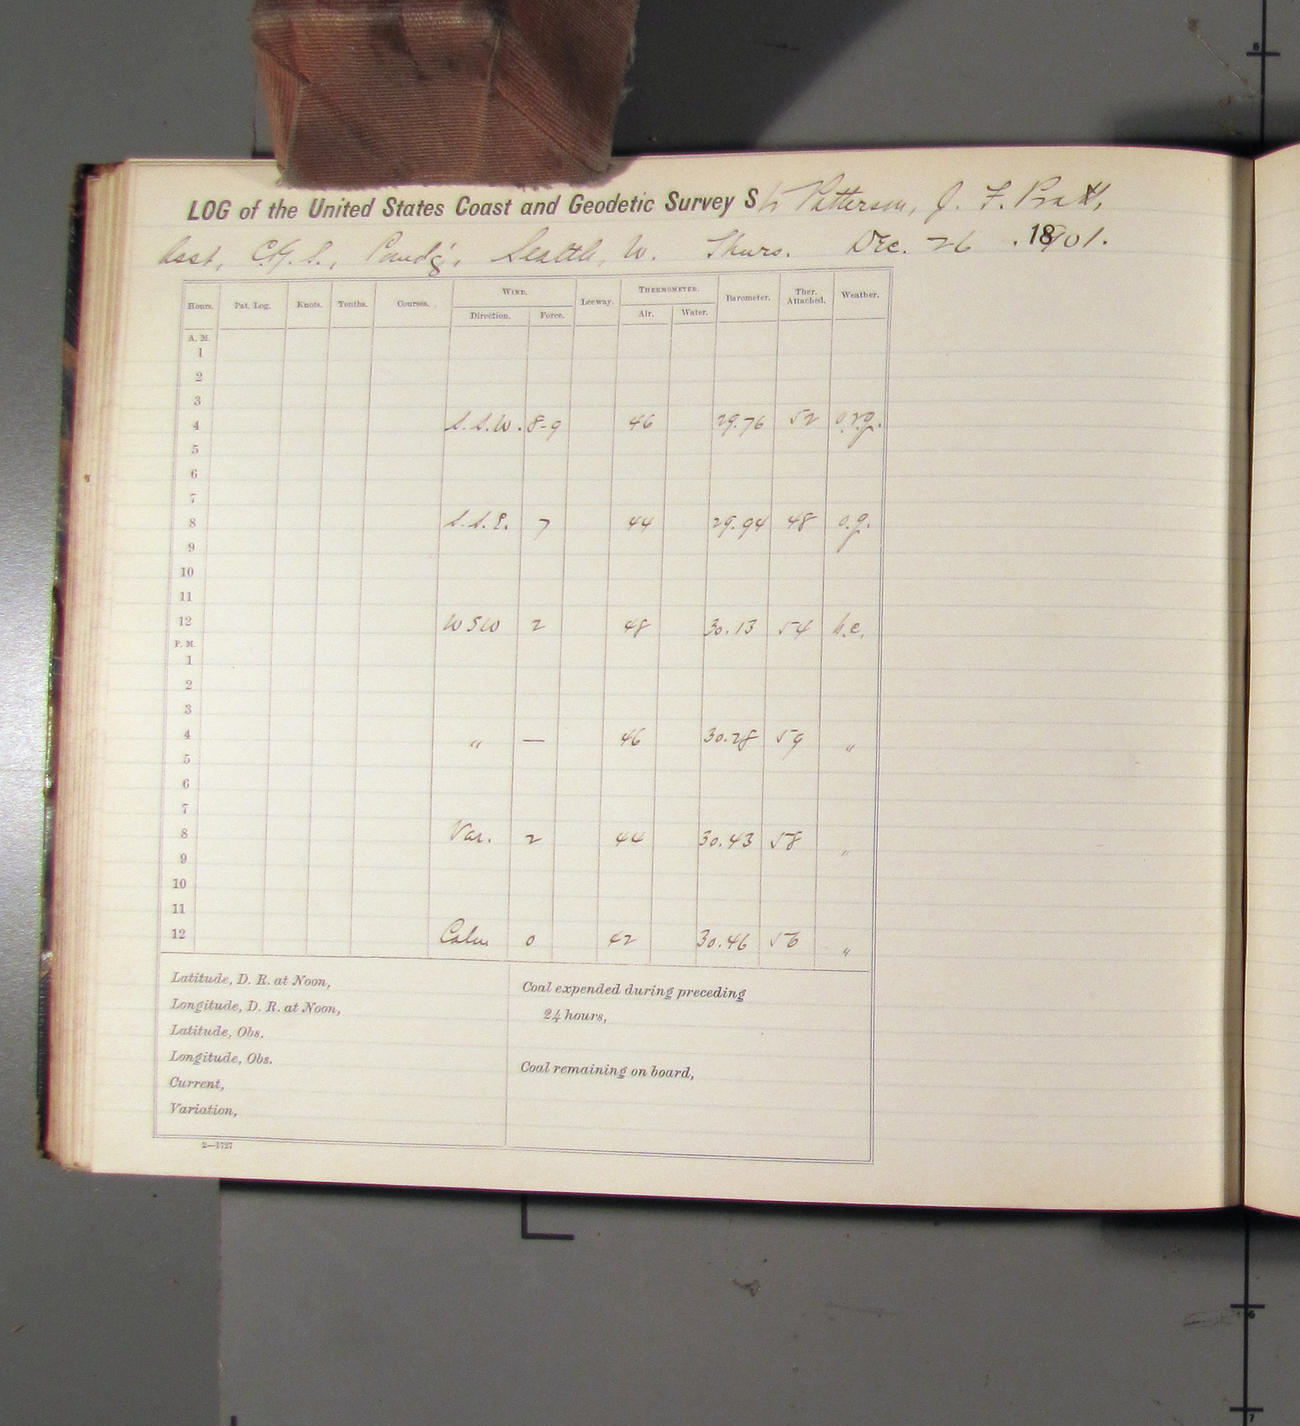 LOG of the United States Coast and Geodetic Survey Str Patterson, J. F. Pratt,
Asst, C.G.S., Comd'g, Seattle, W. Thurs. Dec. 26 . 1901.
Hours. Pat. Log. Knots. Tenths. Courses. WIND. Leeway. THERMOMETER. Barometer. Ther. Attached. Weather.
Direction. Force. Air. Water.
A. M.
1
2
3
4 S.S.W. 8-9 46 29.76 52 o.r.q.
5
6
7
8 S.S.E. 7 44 29.94 48 o.q.
9
10
11
12 WSW 2 48 30.13 54 b.c.
P. M.
1
2
3
4 " — 46 30.28 59 "
5
6
7
8 Var. 2 44 30.43 58 "
9
10
11
12 Calm 0 42 30.46 56 "
Latitude, D. R. at Noon,
Longitude, D. R. at Noon,
Latitude, Obs.
Longitude, Obs.
Current,
Variation,
Coal expended during preceding
24 hours,
Coal remaining on board,
2—1727
6
6
7